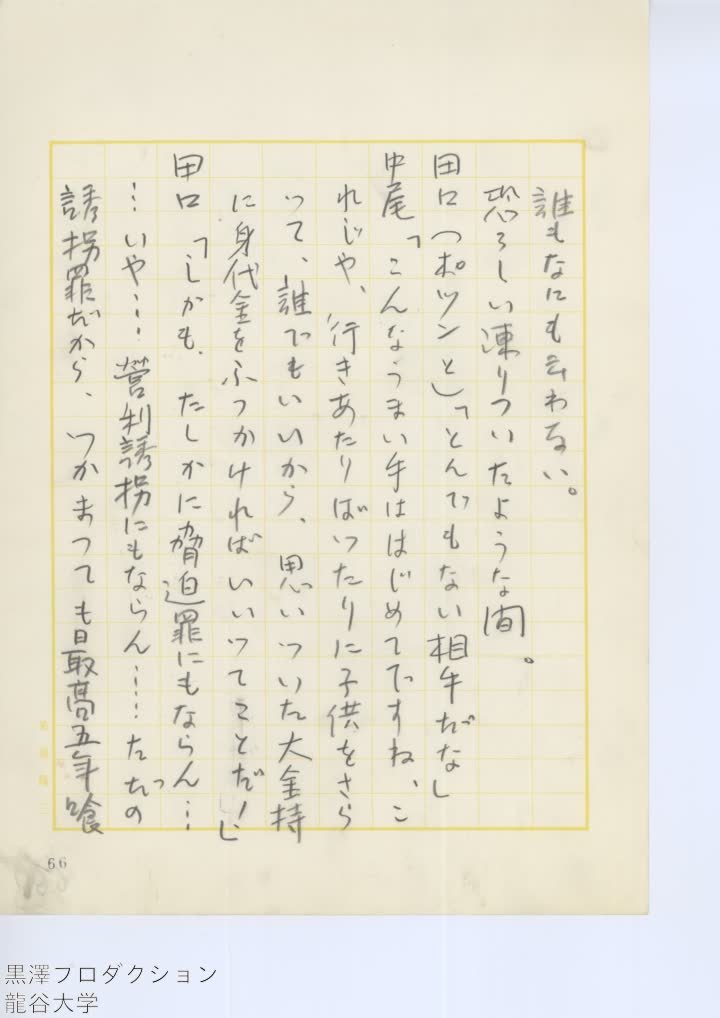 誰もなにも云わない。
恐ろしい凍りついたような間。
田口(ポツンと)「とんでもない相手だな」
中尾「こんなうまい手ははじめてですね、こ
れじや、行きあたりばつたりに子供をさら
つて、誰でもいいから、思いついた大金持
に身代金をふつかければいいつてことだ!」
田口「しかも、たしかに脅迫罪にもならん…
…いや…営利誘拐にもならん……たつたの
誘拐罪だから、つかまつても最高五年喰
66
黒澤プロダクション
龍谷大学